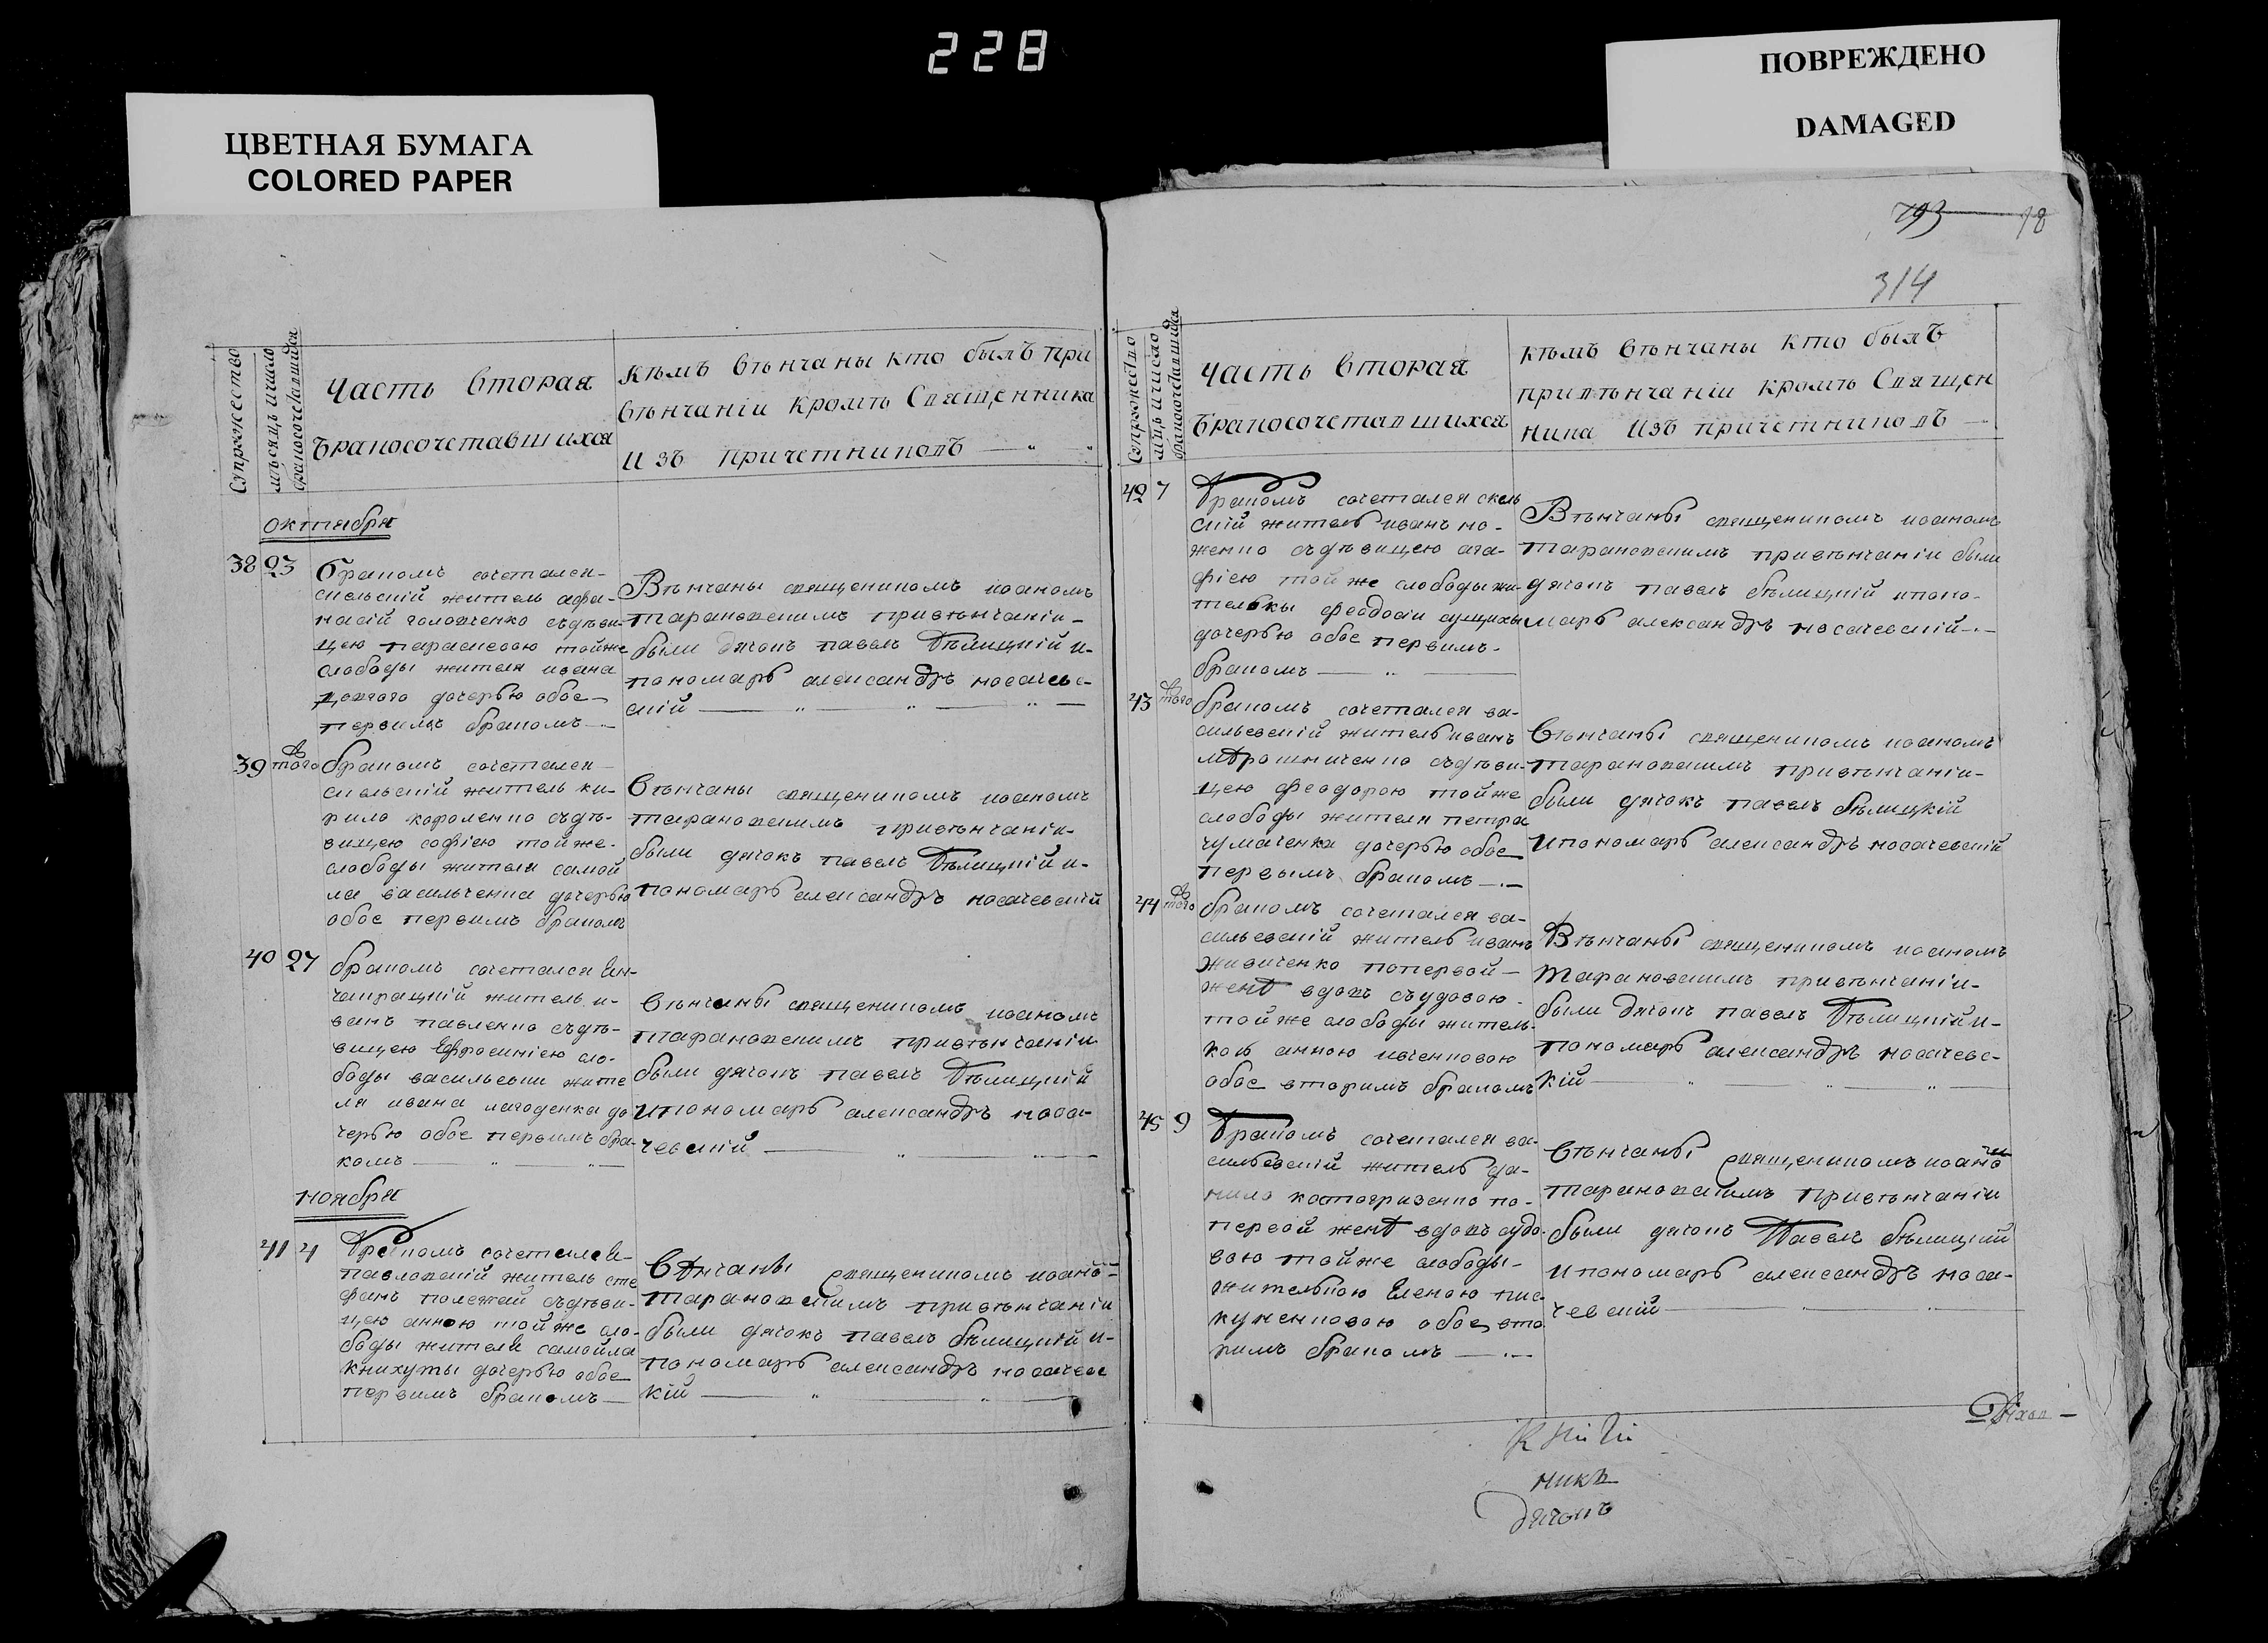 228
ЦВЕТНАЯ БУМАГА
COLORED PAPER
ПОВРЕЖДЕНО
DAMAGED
793 98
314
Супружество
мѣсяцъ ичисло
Часть вторая
бракосочетавшихся
кѣмъ вѣнчаны кто былъ при
вѣнчаніи кромѣ Священника
изъ причетниковъ
октября
38 23
бракомъ сочетался
скельскій житель афа-
насій головченко съдѣви-
цею параскевою тойже
слободы жителя ивана
дочерью обое
первимъ бракомъ
Вѣнчаны священикомъ иоаномъ
тарановскимъ привѣнчаніи
были дячокъ павелъ бѣлицкій и
пономарь александръ носачевс-
скій
39 того
бракомъ сочетался
скельскій житель ки-
рило короленко съдѣ-
вицею софіею тойже
слободы жителя самой
ла васильченка дочерью
обое первимъ бракомъ
Вѣнчаны священикомъ иоаномъ
тарановскимъ привѣнчаніи
были дячокъ павелъ бѣлицкій и
пономарь александръ носачевскій
40 27
бракомъ сочетался Ен-
чакрацкій житель и-
ванъ павленко съдѣ-
вицею Ефросиніею сло-
боды васильевки жите
ля ивана лагоденка до
черью обое первимъ бра-
комъ
Вѣнчаны священикомъ иоаномъ
тарановскимъ привѣнчаніи
были дячокъ павелъ бѣлицкій
ипономарь александръ носа-
чевскій
ноября
41 4
бракомъ сочетался
павловскій житель сте
фанъ полежай съдѣви-
цею анною тойже сло-
боды жителя самойла
книхуты дочерью обое
первимъ бракомъ
Вѣнчаны священикомъ иоано
тарановскимъ привѣнчаніи
были дячокъ павелъ бѣлицкій и
пономарь александръ носачевс
кій
Супружество
мѣцъ ичисло
Часть вторая
бракосочетавшихся
кѣмъ вѣнчаны кто былъ
привѣнчаніи кромѣ Священ
ника изъ причетниковъ
42 7
бракомъ сочетался скель
скій житель иванъ но-
женко съдѣвицею ага-
фіею той же слободы жи-
тельки феодосіи
дочерью обое первимъ
бракомъ
Вѣнчаны священикомъ иоаномъ
тарановскимъ привѣнчаніи были
дячокъ павелъ бѣлицкій ипоно-
марь александръ носачевскій
43 того
бракомъ сочетался ва-
сильевскій житель иванъ
мѣрошниченко съдѣви-
цею феодорою тойже
слободы жителя петра
чумаченка дочерью обое
первымъ бракомъ
Вѣнчаны священикомъ иоаномъ
тарановскимъ привѣнчаніи
были дячокъ павелъ бѣлицкій
ипономарь александръ носачевскій
44 того
бракомъ сочетался ва-
сильевскій житель иванъ
живиченко попервой
женѣ вдовъ съудовою
тойже слободы житель-
кою анною
обое вторимъ бракомъ
Вѣнчаны священикомъ иоаномъ
тарановскимъ привѣнчаніи
были дячокъ павелъ бѣлицкій и
пономарь александръ носачевс-
кій
45 9
бракомъ сочетался ва-
сильевскій житель да-
нило котогризенко по-
первой женѣ вдовъ судо-
вою тойже слободы
жителькою Еленою пис-
куненковою обое вто
римъ бракомъ
Вѣнчаны священикомъ иоано
тарановскимъ привѣнчаніи
были дячокъ Павелъ бѣлицкій
ипономарь александръ носа-
чевскій
никъ
дячокъ